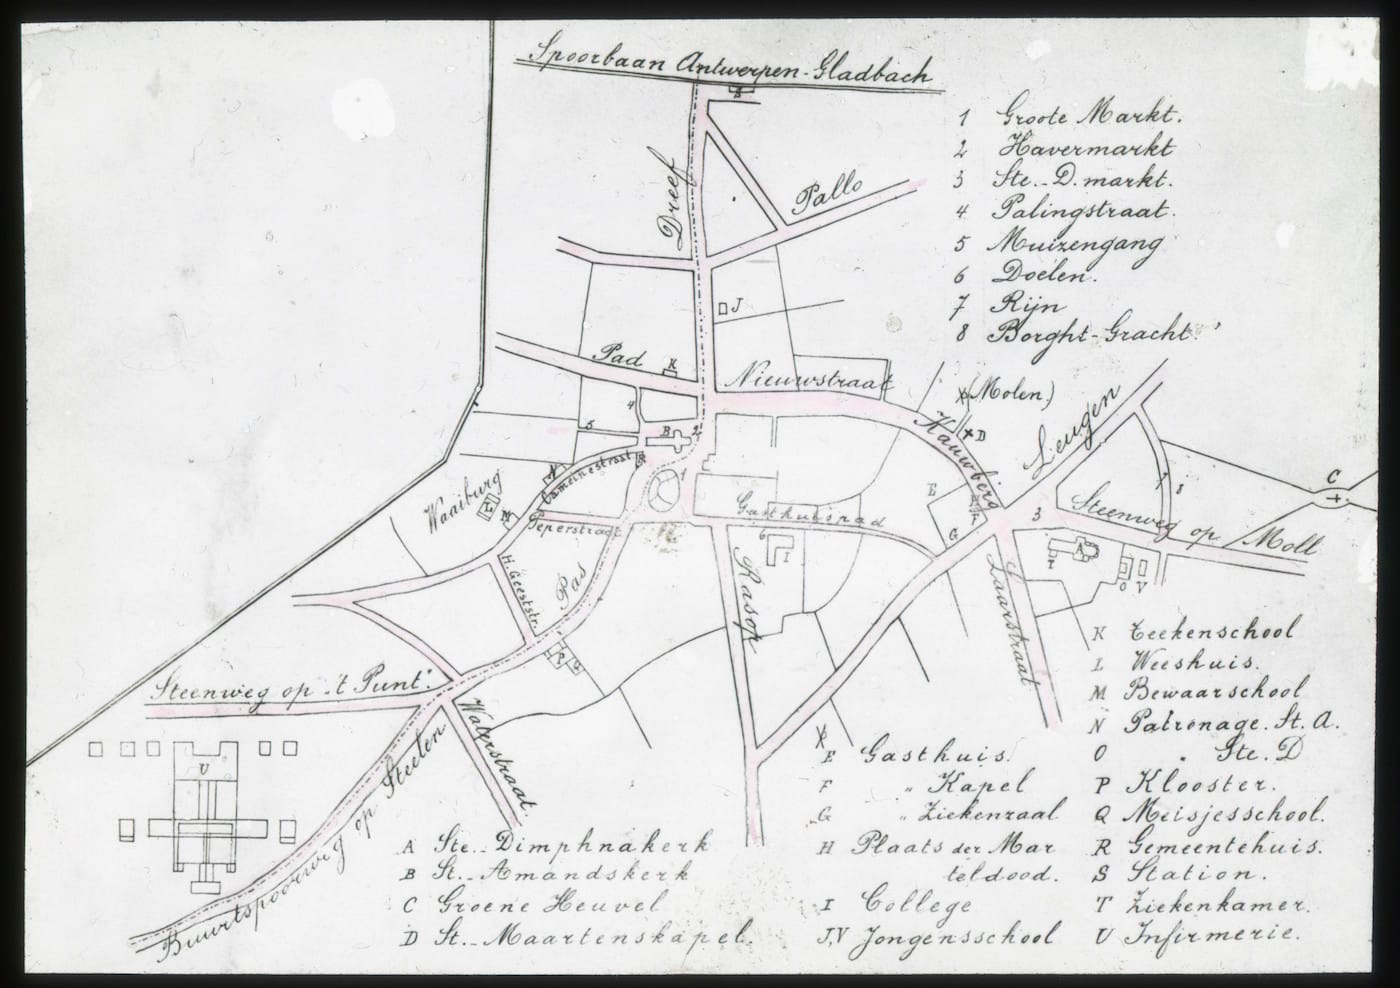 Spoorbaan Antwerpen-Gladbach
S
Dreef
Pallo
1 Groote Markt.
2 Havermarkt
3 Ste.-D. markt.
4 Palingstraat.
5 Muizengang
6 Doelen.
7 Rijn
8 Borght-Gracht.
J
Pad
K
Nieuwstraat
(Molen.)
Kauwberg
D
Leugen
4
5
B
2
R
1
N
Cameinestraat
Waaiburg
L
M
Peperstraat
Gasthuispad
E
F
G
3
7
8
C
Steenweg op Moll
H. Geeststr.
Pas
Rasop
6
I
Laarstraat
A
T
O
V
P
Q
Steenweg op 't Punt".
Waterstraat
Buurtspoorweg op Steelen
U
A Ste.- Dimphnakerk
B St.- Amandskerk
C Groene Heuvel
D St.- Maartenskapel.
E Gasthuis.
F " Kapel
G " Ziekenzaal
H Plaats der Mar
teldood.
I College
J,V Jongensschool
K Teekenschool
L Weeshuis.
M Bewaarschool
N Patronage. St. A.
O " Ste. D
P Klooster.
Q Meisjesschool.
R Gemeentehuis.
S Station.
T Ziekenkamer.
U Infirmerie.